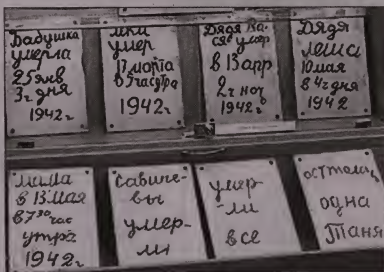 Бабушка
умерла
25 янв
3ч дня
1942г
умер
17 марта
в 5 час утра
1942г
Дядя Ва-
ся умер
в 13 апр
2ч ноч
1942г
Дядя
Леша
10 мая
в 4ч дня
1942
мама
в 13 мая
в 7 30 час
утра
1942г
савиче-
вы
умер-
ли
умер-
ли
все
одна
Таня